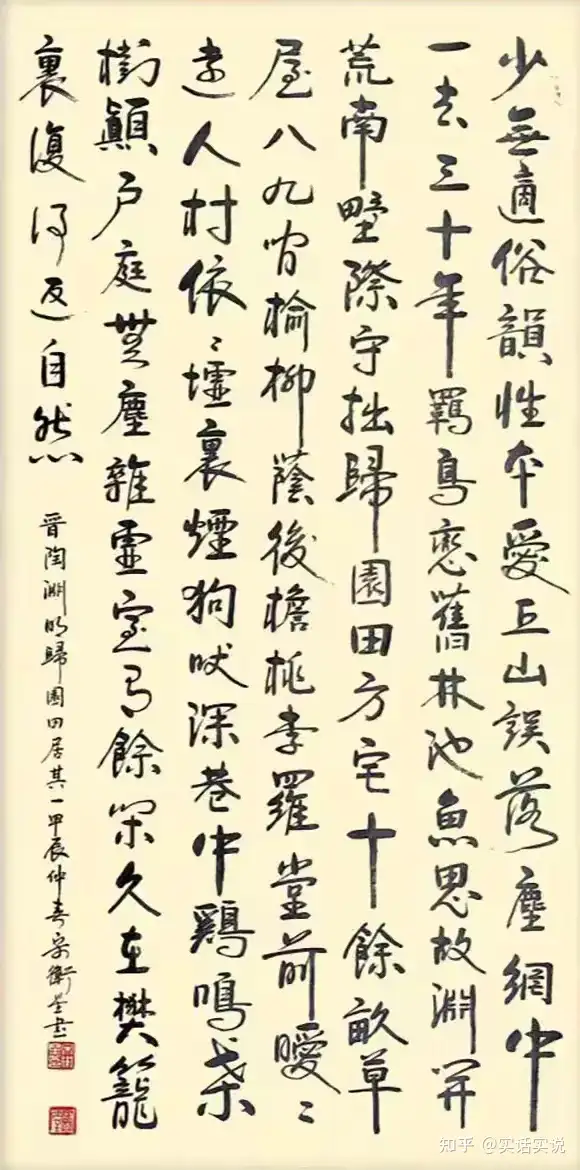 少無適俗韻性本愛丘山誤落塵網中
一去三十年羈鳥戀舊林池魚思故淵開
荒南野際守拙歸園田方宅十餘畝草
屋八九間榆柳蔭後檐桃李羅堂前曖〻
遠人村依〻墟裏煙狗吠深巷中鷄鳴桑
樹顛戶庭無塵雜虛室有餘閑久在樊籠
裏復得返自然
晉陶淵明歸園田居其一甲辰仲春衛星書
知乎 @实话实说